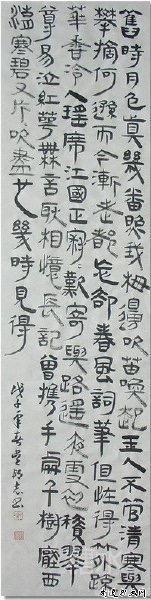 舊時月色算幾番照我梅邊吹笛喚起玉人不管清寒與
攀摘何遜而今漸老都忘却春風詞筆但怪得竹外疏
花香冷入瑤席江國正寂寂歎寄與路遙夜雪初積翠
尊易泣紅萼無言耿相憶長記曾攜手處千樹壓西
湖寒碧又片片吹盡也幾時見得
戊子年春